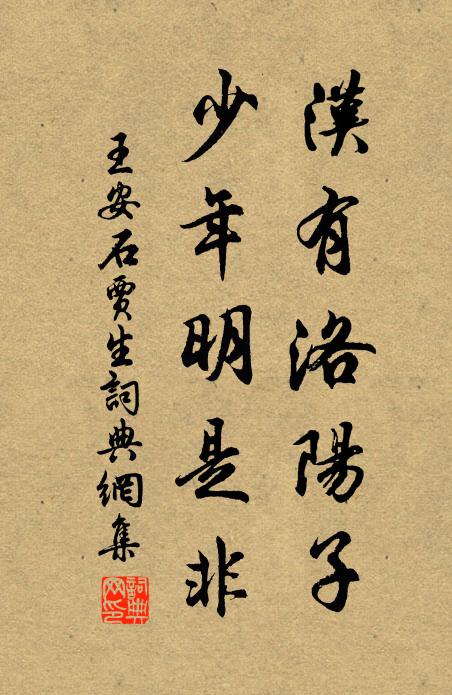 漢有洛陽子
少年明是非
王安石賈生詞典網集
詞典网印